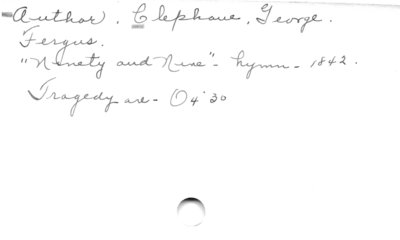 Author. Clephane, George.
Fergus.
"Ninety and Nine" - hymn - 1842.
Tragedy are - O 4 '30